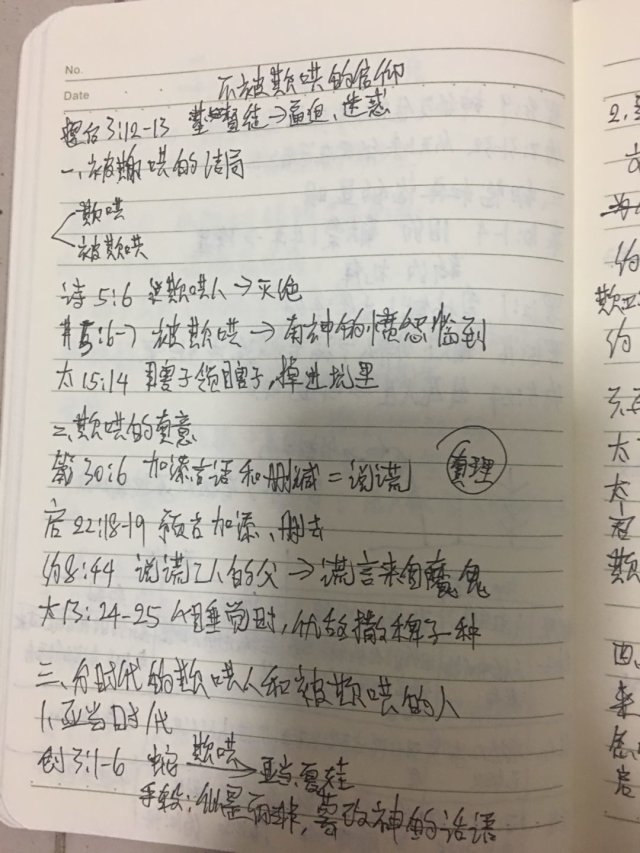 No.
Date
不被欺哄的信仰
提后3:12-13 基督徒→逼迫、迷惑
一、被欺哄的结局
欺哄
被欺哄
诗5:6 欺哄人→灭绝
弗5:6-7 被欺哄→有神的愤怒临到
太15:14 瞎子领瞎子,掉进坑里
二、欺哄的真意
箴30:6 加添言语和删减=说谎 真理
启22:18-19 预言加添、删去
约8:44 说谎之人的父→谎言来自魔鬼
太13:24-25 人睡觉时,仇敌撒稗子种
三、分时代的欺哄人和被欺哄的人
1.亚当时代
创3:1-6 蛇 欺哄→亚当、夏娃
手段:似是而非,篡改神的话语
2.
约
欺
约
太
太
冠
欺
四、
来
启